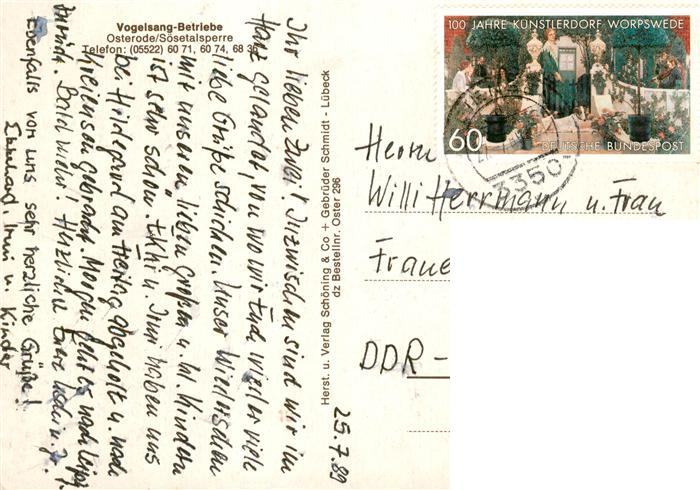 Vogelsang-Betriebe
Osterode/Sösetalsperre
Telefon: (05522) 60 71, 60 74, 68 36
Ihr lieben Zwei! Inzwischen sind wir im
Harz gelandet von wo wir Euch wieder viele
liebe Grüße schicken. Unser Wiedersehen
mit unseren lieben Großen u. kl. Kindern
ist sehr schön. Ekki u. Irmi haben uns
bei Hildegard am Freitag abgeholt u. nach
gebracht. Morgen geht es nach
zurück. Bald mehr. Herzlichst Eure
Ebenfalls von uns sehr herzliche Grüße!
Ekkehard, Irmi u. Kinder
Herst. u. Verlag Schöning & Co + Gebrüder Schmidt - Lübeck
dz Bestellnr. Oster 296
25.7.89
100 JAHRE KÜNSTLERDORF WORPSWEDE
60 DEUTSCHE BUNDESPOST
3350
Herrn
Willi Herrmann u. Frau
Fraue
DDR-